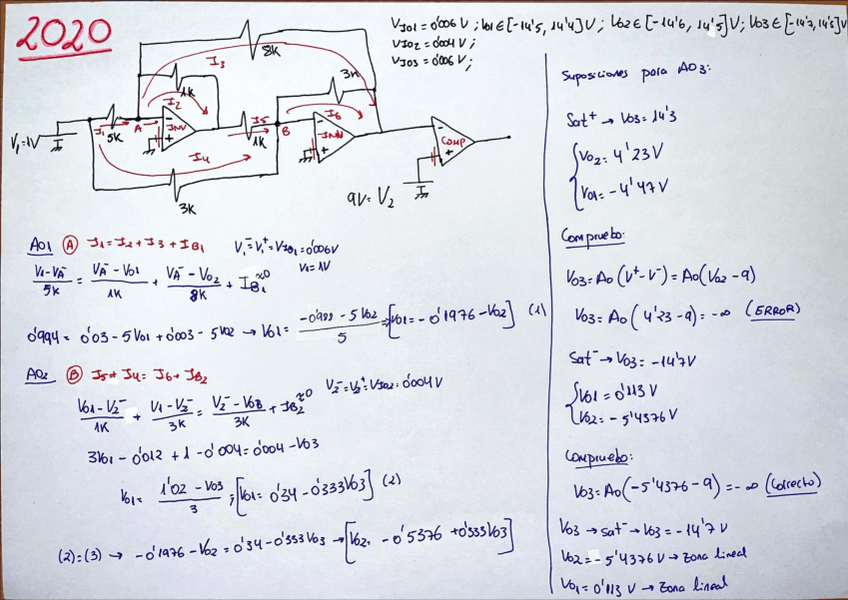 2020
V_IO1 = 0'006 V ; V01 ∈ [-14'5, 14'4] V ; V02 ∈ [-14'6, 14'5] V ; V03 ∈ [-14'7, 14'3] V
V_IO2 = 0'004 V ;
V_IO3 = 0'006 V ;
8K
I3
1K
I2
3K
V1=1V
I1
5K
A
-
INV
+
I5
1K
B
I6
-
INV
+
-
COMP
+
I4
3K
9V = V2
A01 (A) I1 = I2 + I3 + I_B1 V1⁻ = V1⁺ = V_IO1 = 0'006 V
V1 = 1V
(V1 - VA⁻)/5K = (VA⁻ - V01)/1K + (VA⁻ - V02)/8K + I_B1 ≈0
0'994 = 0'03 - 5V01 + 0'003 - 5V02 → V01 = (-0'988 - 5V02)/5 ⇒ [V01 = -0'1976 - V02] (1)
A02 (B) I5 + I4 = I6 + I_B2
V2⁻ = V2⁺ = V_IO2 = 0'004 V
(V01 - V2⁻)/1K + (V1 - V2⁻)/3K = (V2⁻ - V03)/3K + I_B2 ≈0
3V01 - 0'012 + 1 - 0'004 = 0'004 - V03
V01 = (1'02 - V03)/3 ; [V01 = 0'34 - 0'333V03] (2)
(2)=(3) → -0'1976 - V02 = 0'34 - 0'333V03 → [V02 = -0'5376 + 0'333V03]
Suposiciones para A03:
Sat⁺ → V03 = 14'3
{ V02 = 4'23 V
V01 = -4'47 V
Compruebo:
V03 = A0 (V⁺ - V⁻) = A0 (V02 - 9)
V03 = A0 (4'23 - 9) = -∞ (ERROR)
Sat⁻ → V03 = -14'7V
{ V01 = 0'113 V
V02 = -5'4376 V
Compruebo:
V03 = A0 (-5'4376 - 9) = -∞ (Correcto)
V03 → sat⁻ → V03 = -14'7 V
V02 = -5'4376 V → Zona lineal
V01 = 0'113 V → Zona lineal